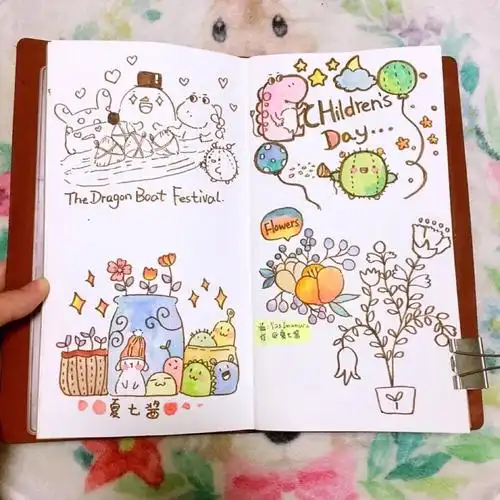 The Dragon Boat Festival.
夏七酱
CHildren's
Day...
Flowers
@夏七酱